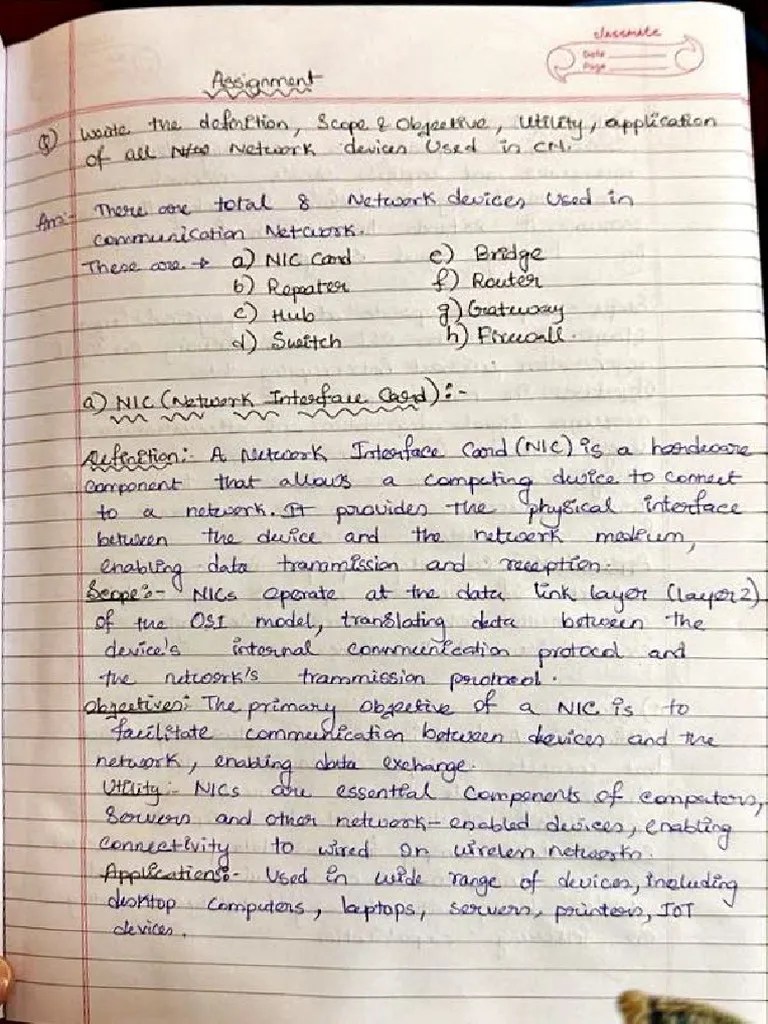 classmate
Date
Page
Assignment
Q) Write the definition, Scope & Objective, Utility, application
of all Network devices Used in CN.
Ans:- There are total 8 Network devices used in
communication Network.
These are → a) NIC Card e) Bridge
b) Repeater f) Router
c) Hub g) Gateway
d) Switch h) Firewall.
a) NIC (Network Interface Card):-
Definition:- A Network Interface Card (NIC) is a hardware
component that allows a computing device to connect
to a network. It provides the physical interface
between the device and the network medium,
enabling data transmission and reception.
Scope:- NICs operate at the data link layer (layer 2)
of the OSI model, translating data between the
device's internal communication protocol and
the network's transmission protocol.
Objectives: The primary objective of a NIC is to
facilitate communication between devices and the
network, enabling data exchange.
Utility:- NICs are essential components of computers,
Servers and other network-enabled devices, enabling
connectivity to wired or wireless networks.
Applications:- Used in wide range of devices, including
desktop computers, laptops, servers, printers, IOT
devices.